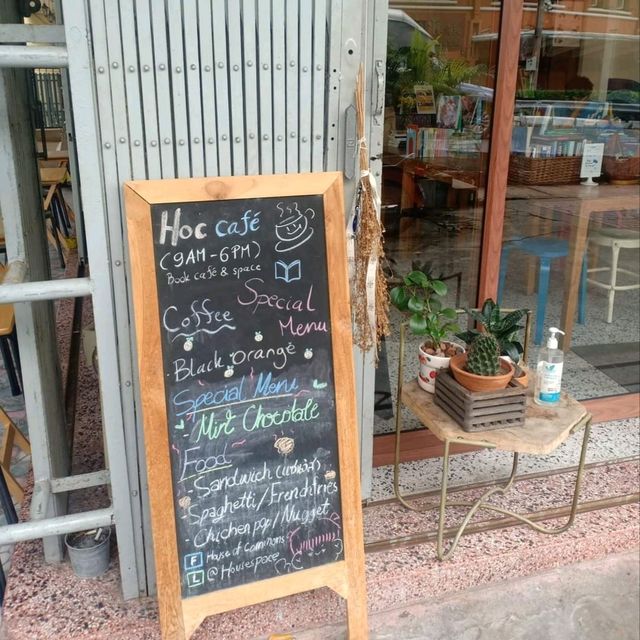 Hoc café
(9AM-6PM)
Book café & space
Special
Coffee
Menu
- Black orange
Special Menu
- Mint Chocolate
Food
- Sandwich
Spaghetti / Frendfries
- Chichen pop / Nugget
F House of Commons
L @Housespace